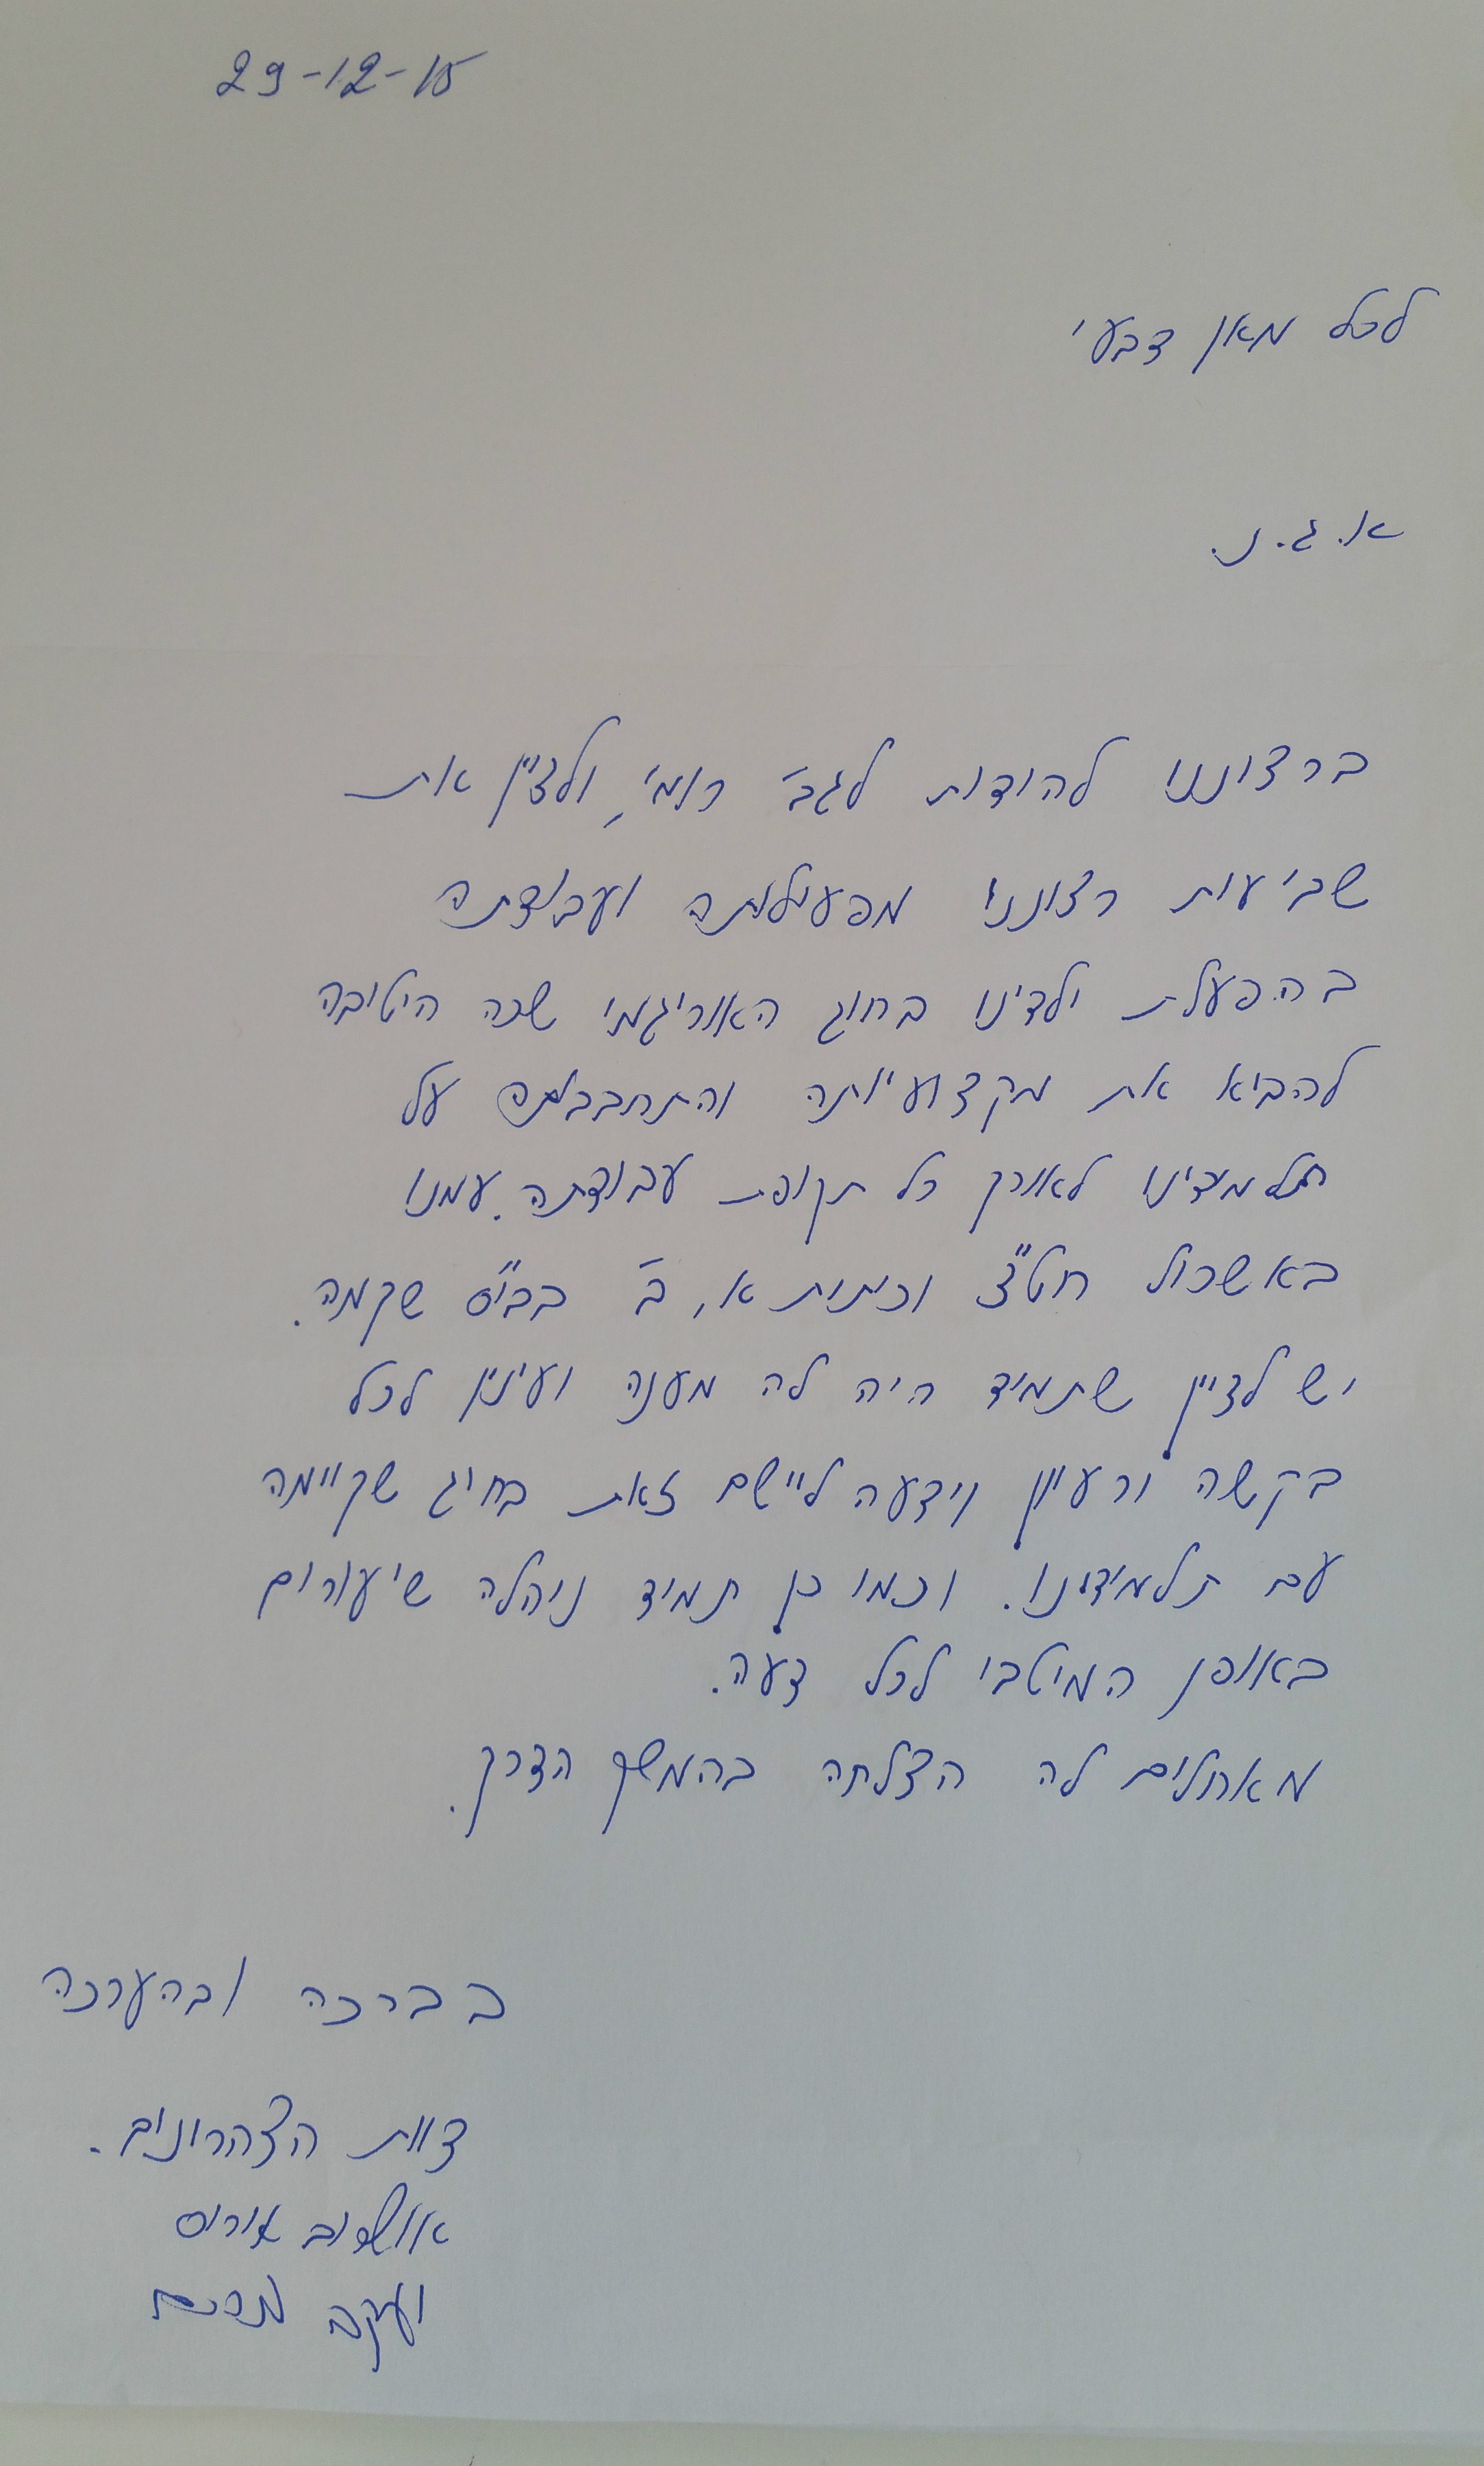 29-12-15
לכל מאן דבעי
א. ג. נ.
ברצוננו להודות לגב' רומי, ולציין את
שביעות רצוננו מפעילותה ועבודתה
בהפעלת ילדינו בחוג האוריגמי שבה היטיבה
להביא את מקצועיותה והתחבבותה על
תלמידינו לאורך כל תקופת עבודתה עמנו
באשכול חט"צ וכיתות א, ב' בבי"ס שקמה.
יש לציין שתמיד היה לה מענה ועיניין לכל
בקשה ורעיון וידעה ליישם זאת בחוג שקיימה
עם תלמידינו. וכמו כן תמיד ניהלה שיעורים
באופן המיטבי לכל דעה.
מאחלים לה הצלחה בהמשך הדרך.
בברכה ובהערכה
צוות הצהרונים.